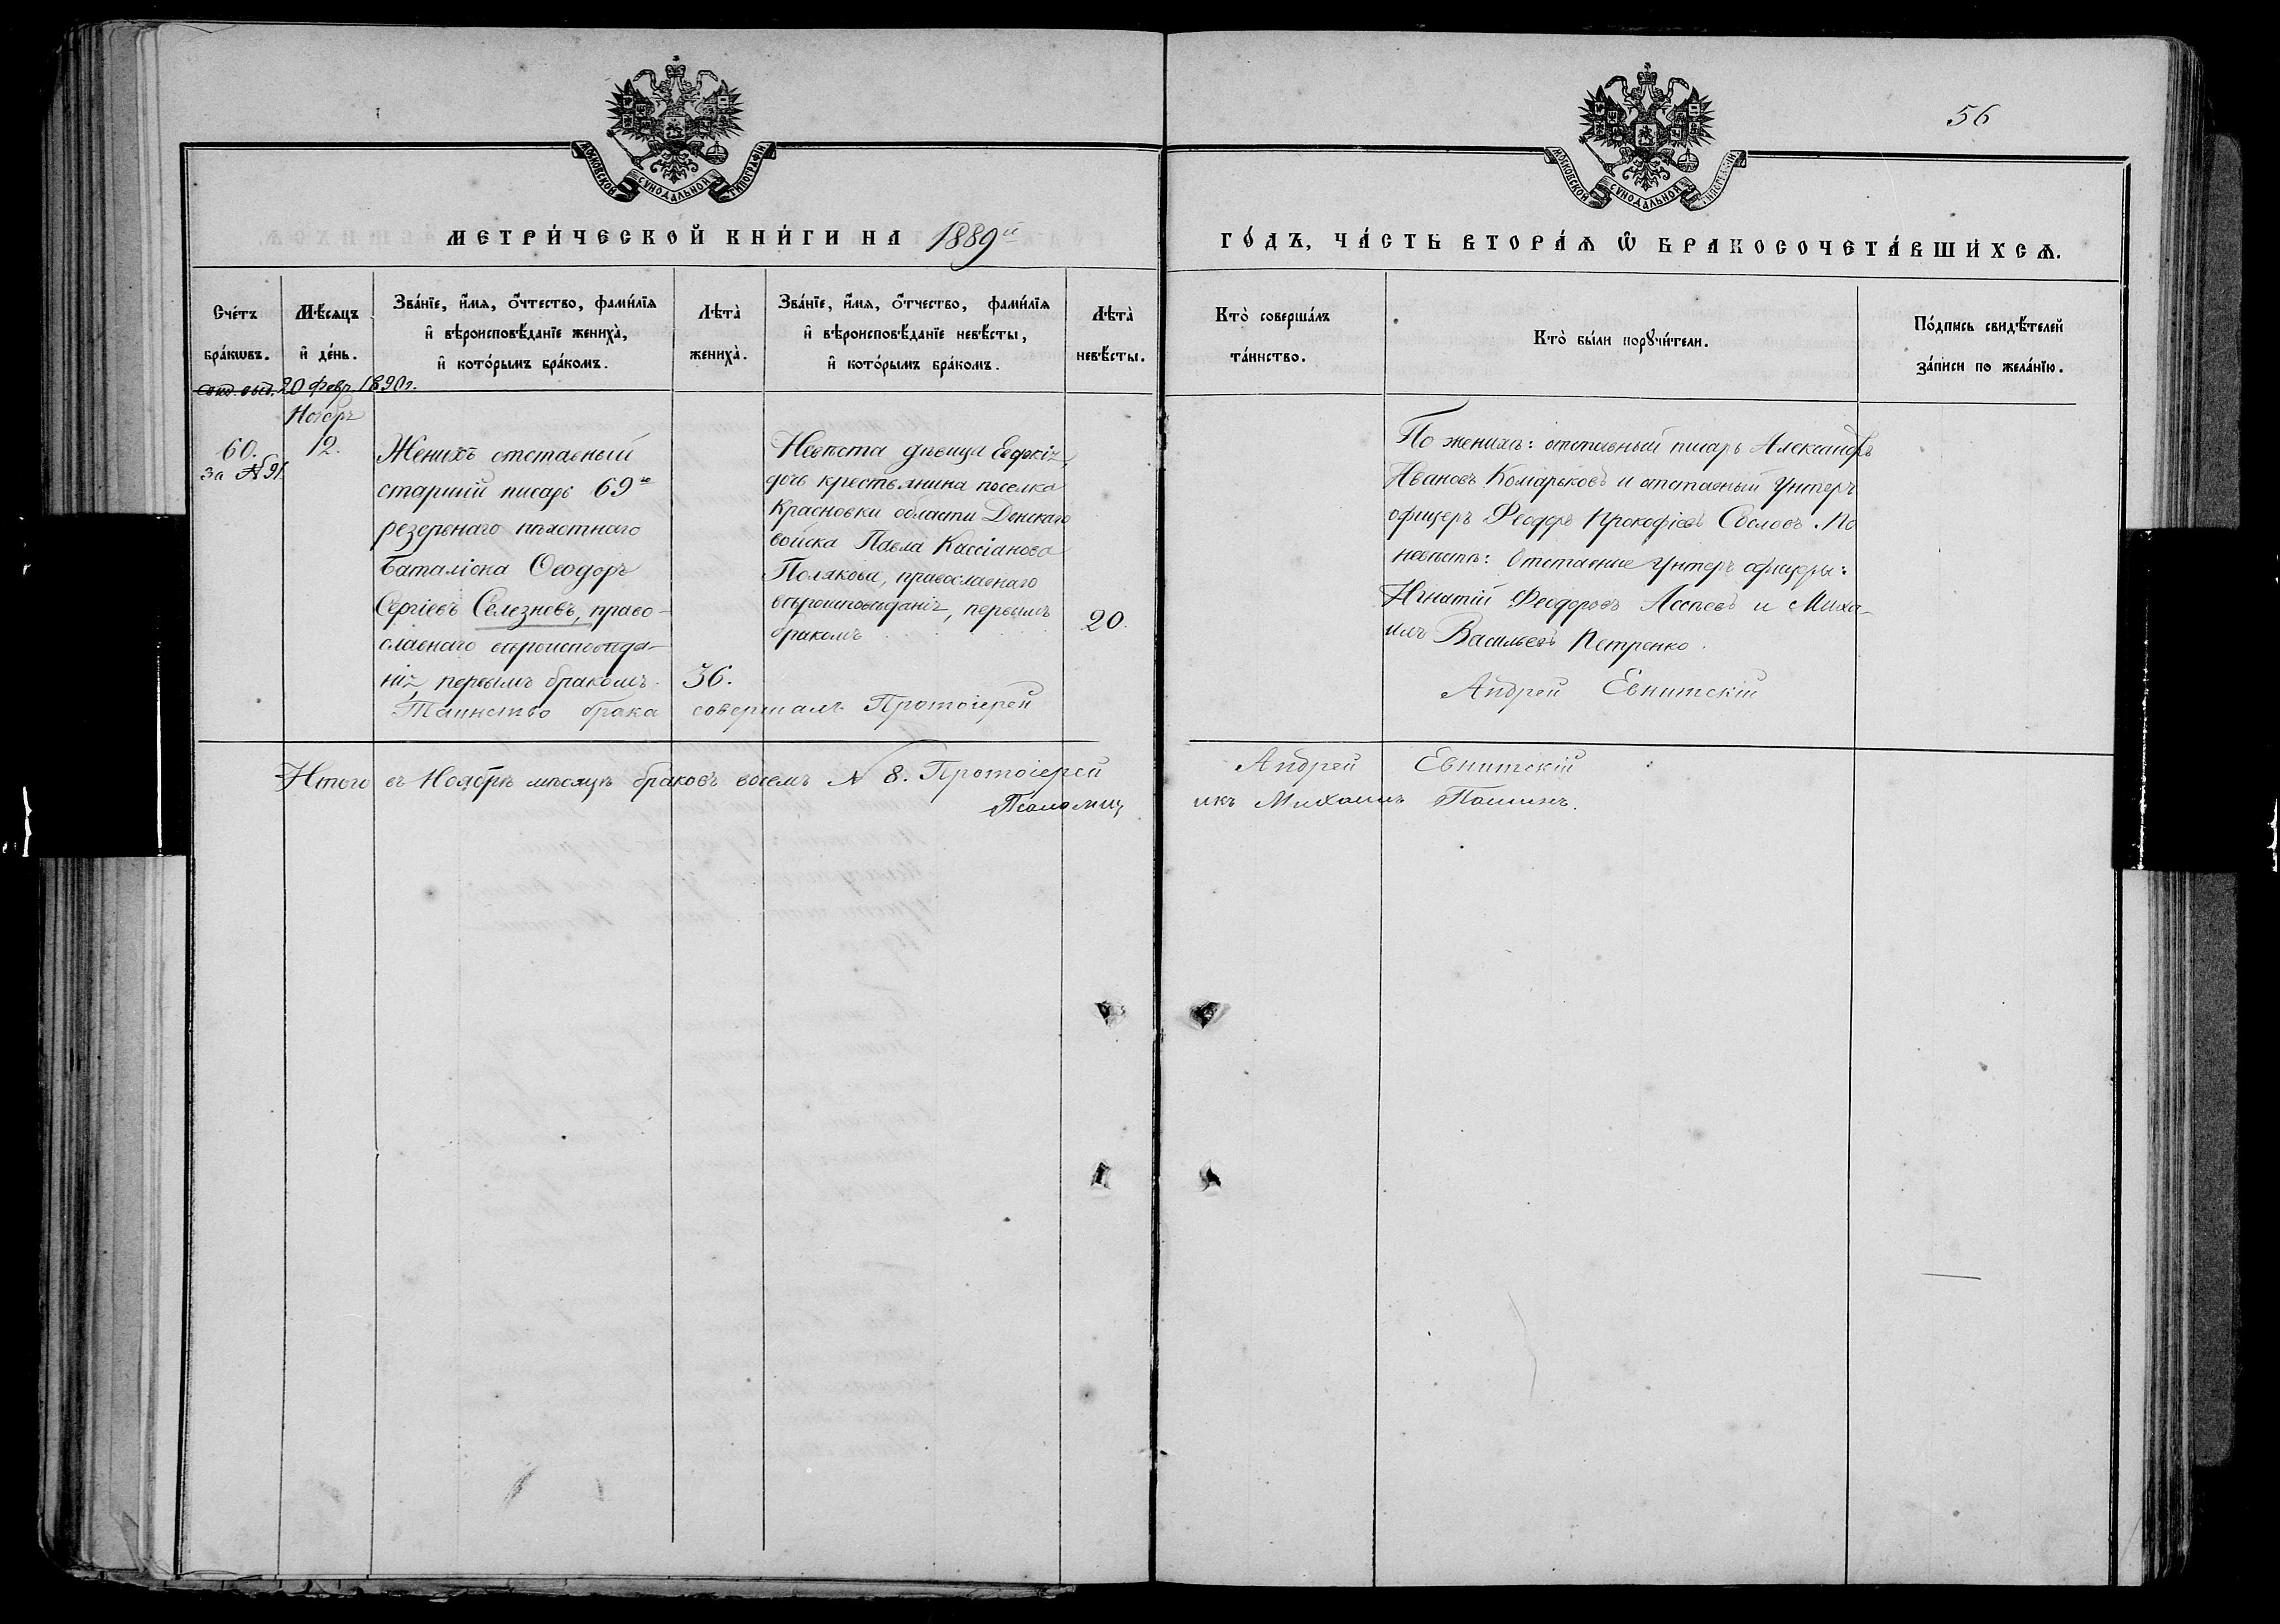 56
МОСКОВСКОЙ СѴНОДАЛЬНОЙ ТИПОГРАФІИ
МОСКОВСКОЙ СѴНОДАЛЬНОЙ
МЕТРИ́ЧЕСКОЙ КНИ́ГИ НА 1889й
ГО́ДЪ, ЧА́СТЬ ВТОРА́Ѧ Ѡ҆ БРАКОСОЧЕТА́ВШИХСѦ.
Сче́тъ бра́кѡвъ.
Мѣ́сяцъ и҆ де́нь.
Зва́нїе, и҆́мя, о҆́тчество, фами́лїя и҆ вѣроисповѣ́данїе жениха̀, и҆ кото́рымъ бра́комъ.
Лѣта̀ жениха̀.
Зва́нїе, и҆́мя, о҆́тчество, фами́лїя и҆ вѣроисповѣ́данїе невѣ́сты, и҆ кото́рымъ бра́комъ.
Лѣта̀ невѣ́сты.
Кто̀ соверша́лъ та́инство.
Кто̀ бы́ли порꙋчи́тели.
По́дпись свидѣ́телей за́писи по жела́нїю.
20 февр. 1890 г.
Ноябрь
60.
за №91.
12.
Женихъ отставный
старшій писарь 69го
резервнаго пѣхотнаго
баталіона Ѳеодоръ
Сергіевъ Селезневъ, право-
славнаго вѣроисповѣда-
нія, первымъ бракомъ.
36.
Невѣста дѣвица
дочь крестьянина поселка
Красновки области Донскаго
войска Павла Кассіанова
Полякова, православнаго
вѣроисповѣданія, первымъ
бракомъ
20.
По женихѣ: отставный писарь Александръ
Ивановъ Комарьковъ и отставный унтеръ
офицеръ Ѳеодоръ Прокофіевъ По
невѣстѣ: Отставные унтеръ офицеры:
Игнатій Ѳеодоровъ и Миха-
илъ Васильевъ Петренко.
Таинство брака совершалъ Протоіерей Андрей Евнитскій
Итого въ Ноябрѣ мѣсяцѣ браковъ восемь № 8. Протоіерей Андрей Евнитскій
Псаломщикъ Михаилъ Пашинъ.